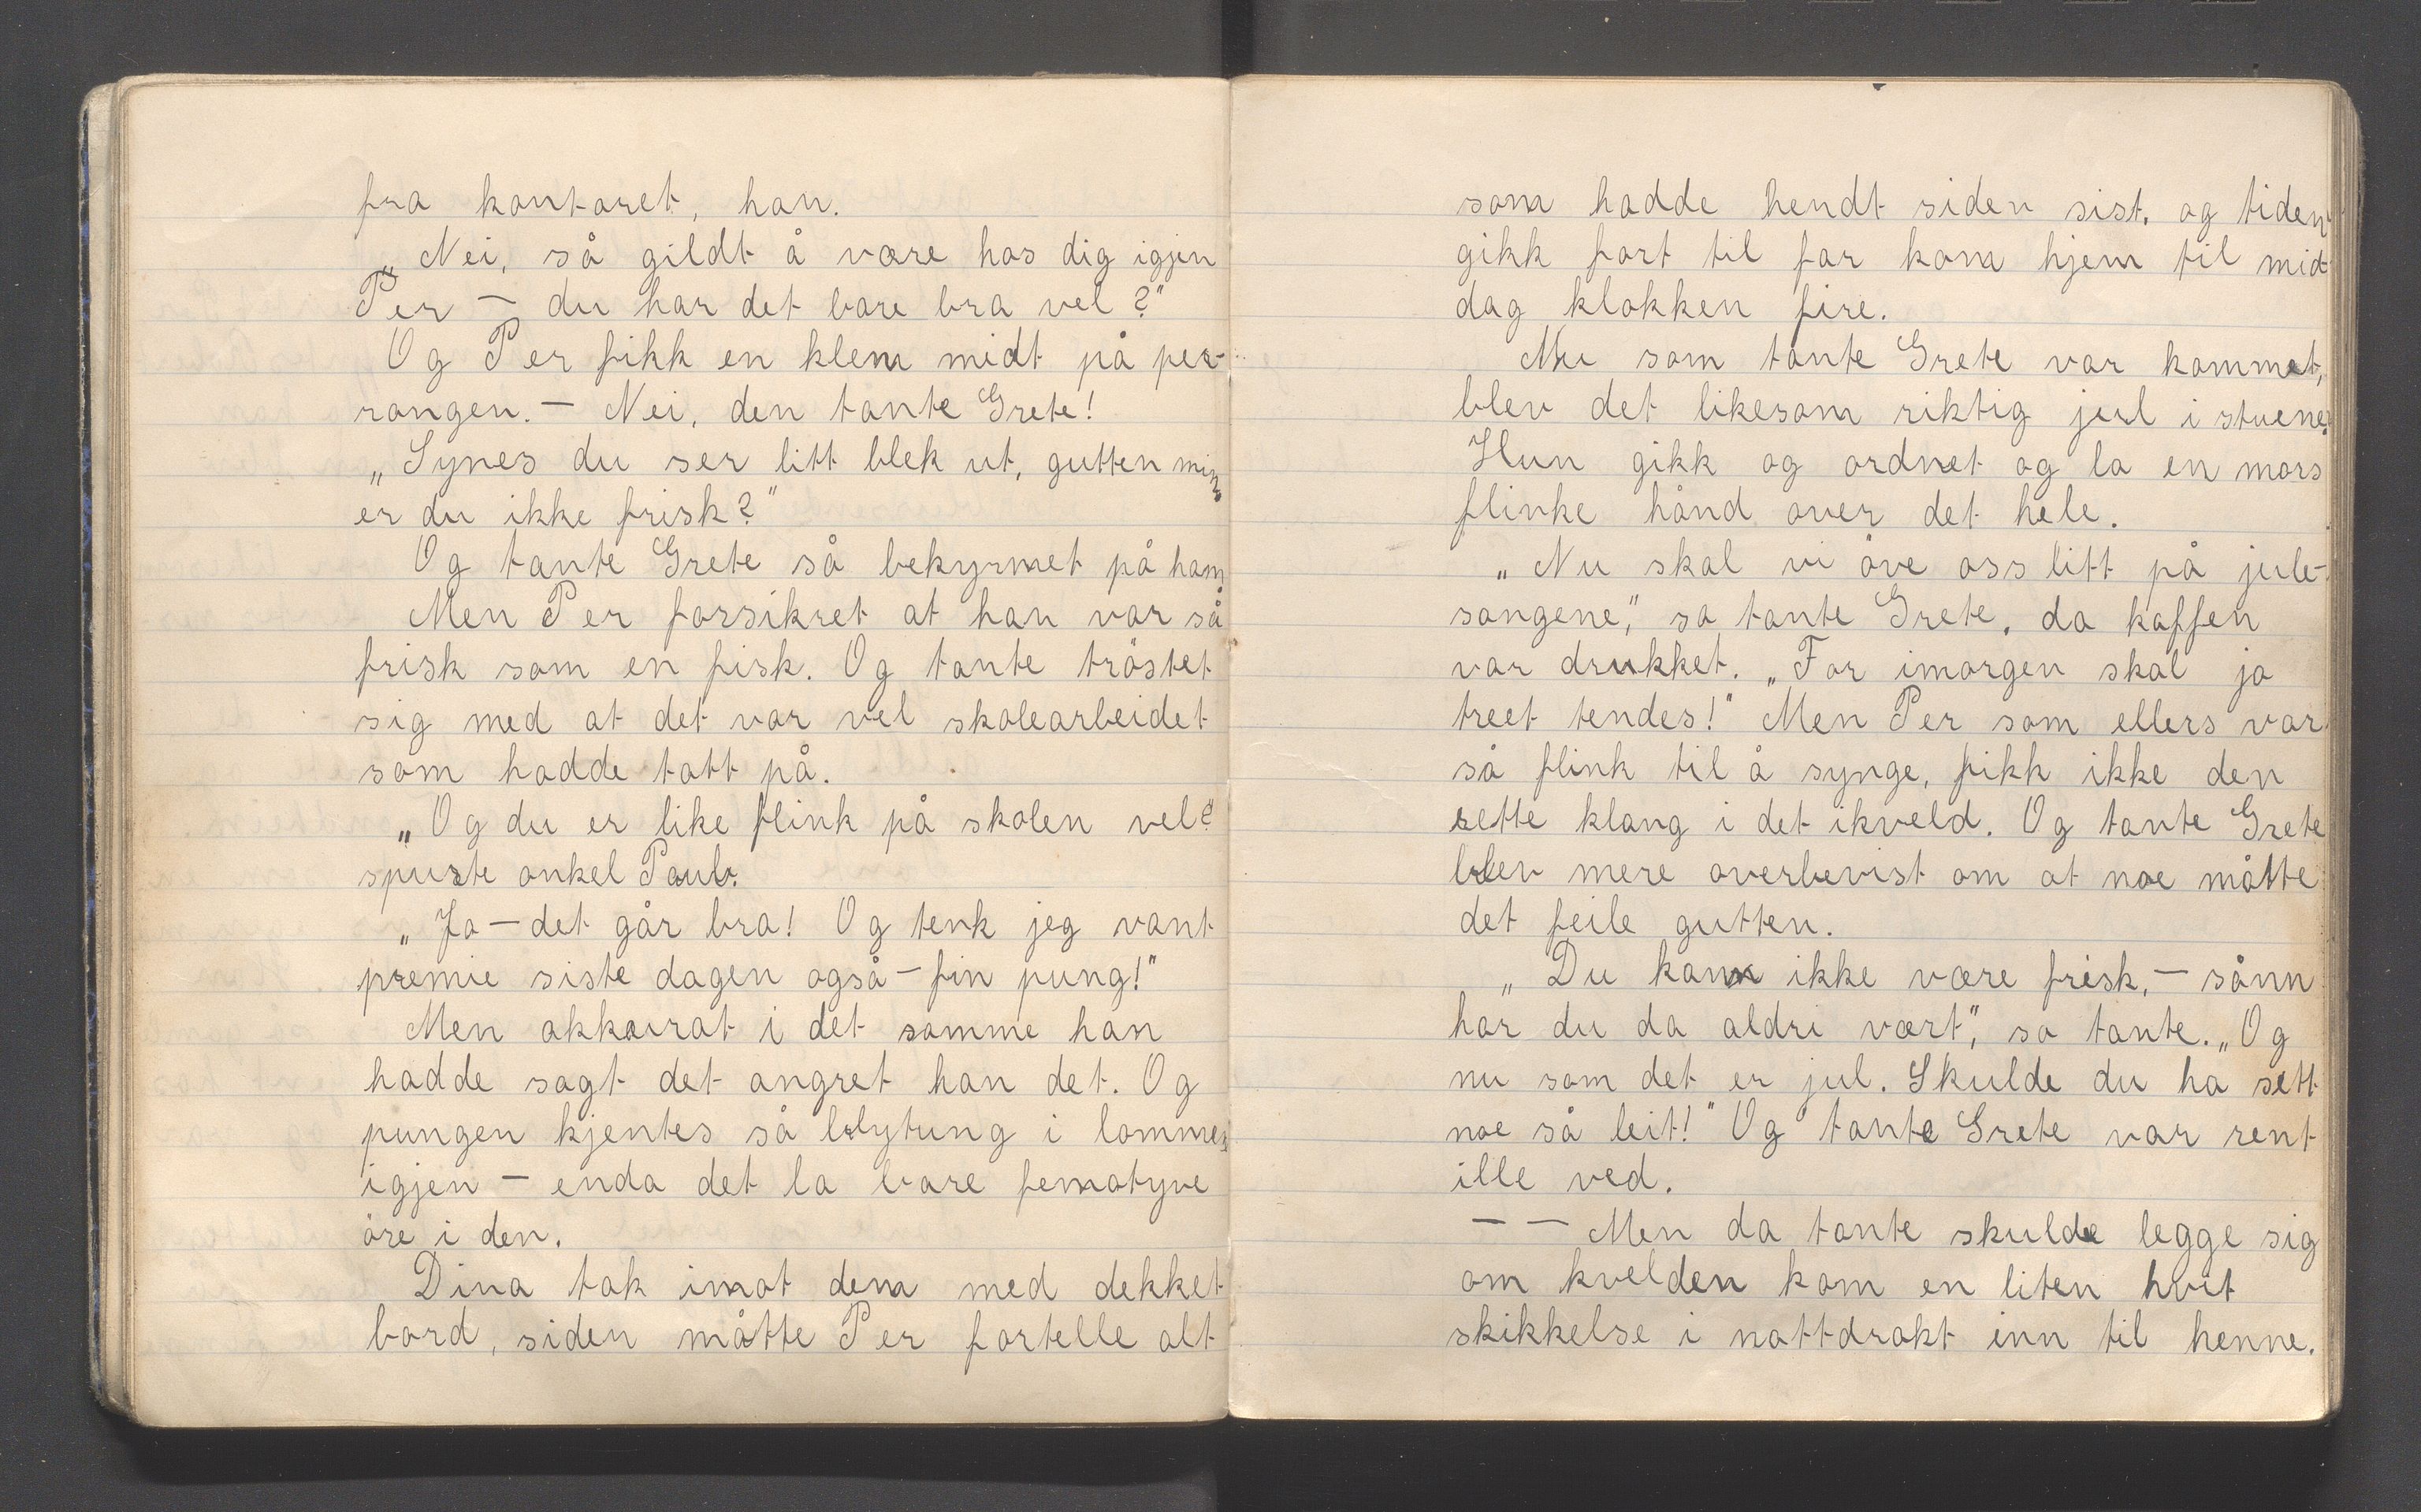 fra kontoret, han.
„Nei, så gildt å være hos dig igjen
Per — du har det bare bra vel?"
Og Per fikk en klem midt på per-
rongen. — Nei, den tante Grete!
„Synes du ser litt blek ut, gutten min,
er du ikke frisk?"
Og tante Grete så bekymret på ham.
Men Per forsikret at han var så
frisk som en fisk. Og tante tröstet
sig med at det var vel skolearbeidet
som hadde tatt på.
„Og du er like flink på skolen vel?"
spurte onkel Paul.
„Ja — det går bra! Og tenk jeg vant
premie siste dagen også — fin pung!"
Men akkurat i det samme han
hadde sagt det angret han det. Og
pungen kjentes så blytung i lommen
igjen — enda det la bare femotyve
öre i den.
Dina tok imot dem med dekket
bord, siden måtte Per fortelle alt
som hadde hendt siden sist, og tiden
gikk fort til far kom hjem til mid-
dag klokken fire.
Nu som tante Grete var kommet,
blev det likesom riktig jul i stuene.
Hun gikk og ordnet og la en mors
flinke hånd over det hele.
„Nu skal vi öve oss litt på jule-
sangene," sa tante Grete, da kaffen
var drukket. „For imorgen skal jo
treet tendes!" Men Per som ellers var
så flink til å synge, fikk ikke den
rette klang i det ikveld. Og tante Grete
blev mere overbevist om at noe måtte
det feile gutten.
„Du kann ikke være frisk, — sånn
har du da aldri vært," sa tante. „Og
nu som det er jul. Skulde du ha sett
noe så leit!" Og tante Grete var rent
ille ved.
— — Men da tante skulde legge sig
om kvelden kom en liten hvit
skikkelse i nattdrakt inn til henne.